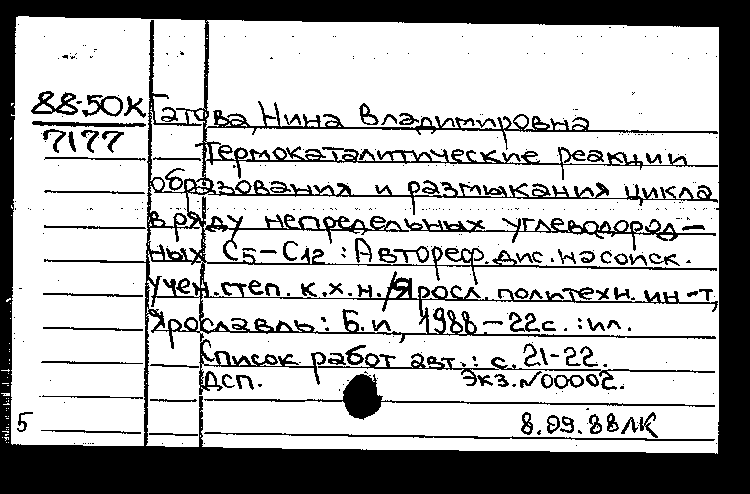 88-50К
7177
Гатова, Нина Владимировна
Термокаталитические реакции
образования и размыкания цикла
в ряду непредельных углеводород-
ных С5-С12 : Автореф. дис. на соиск.
учен. степ. к.х.н. / Яросл. политехн. ин-т,
Ярославль: Б.и., 1988. - 22с. : ил.
Список работ авт.: с. 21-22.
ДСП. Экз. №00002.
5 8.09.88ЛК